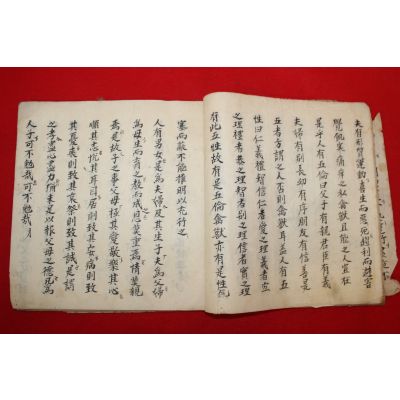 夫有形質運動者生而惡死趨利而避害
覺飢寒痛癢之私禽獸且能之人豈在
是乎人有五倫曰父子有親君臣有義
夫婦有別長幼有序朋友有信是
五者方謂之人否則禽獸耳蓋人有五
性曰仁義禮智信仁者愛之理義者宜
之理禮者恭之理智者別之理信者實之理
有此五性故有是五倫禽獸亦有是性氣
塞而蔽不能擴明以充行之
人有男女是爲夫婦及其生子夫爲父婦
爲母生而育之教而成之恩莫重焉情莫親
焉是故子之事父母極其愛敬樂其心
其志其耳目居則致其安病則致
其憂喪則致其哀祭則致其誠是謂
之孝盡心盡力猶未足以報父母之德爲
人子可不勉哉可不勉哉